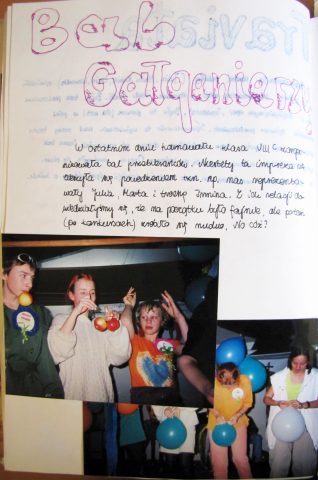 Bal
Gałganiarzy
W ostatnim dniu karnawału klasa VIII c zorga-
nizowała bal przebierańców. Niestety ta impreza nie
cieszyła się powodzeniem tzn. np. nas reprezento-
wały Julia, Marta i troszkę Janina. Z ich relacji do-
wiedziałyśmy się, że na początku było fajnie, ale potem
(po konkursach) zrobiło się nudno. No cóż?